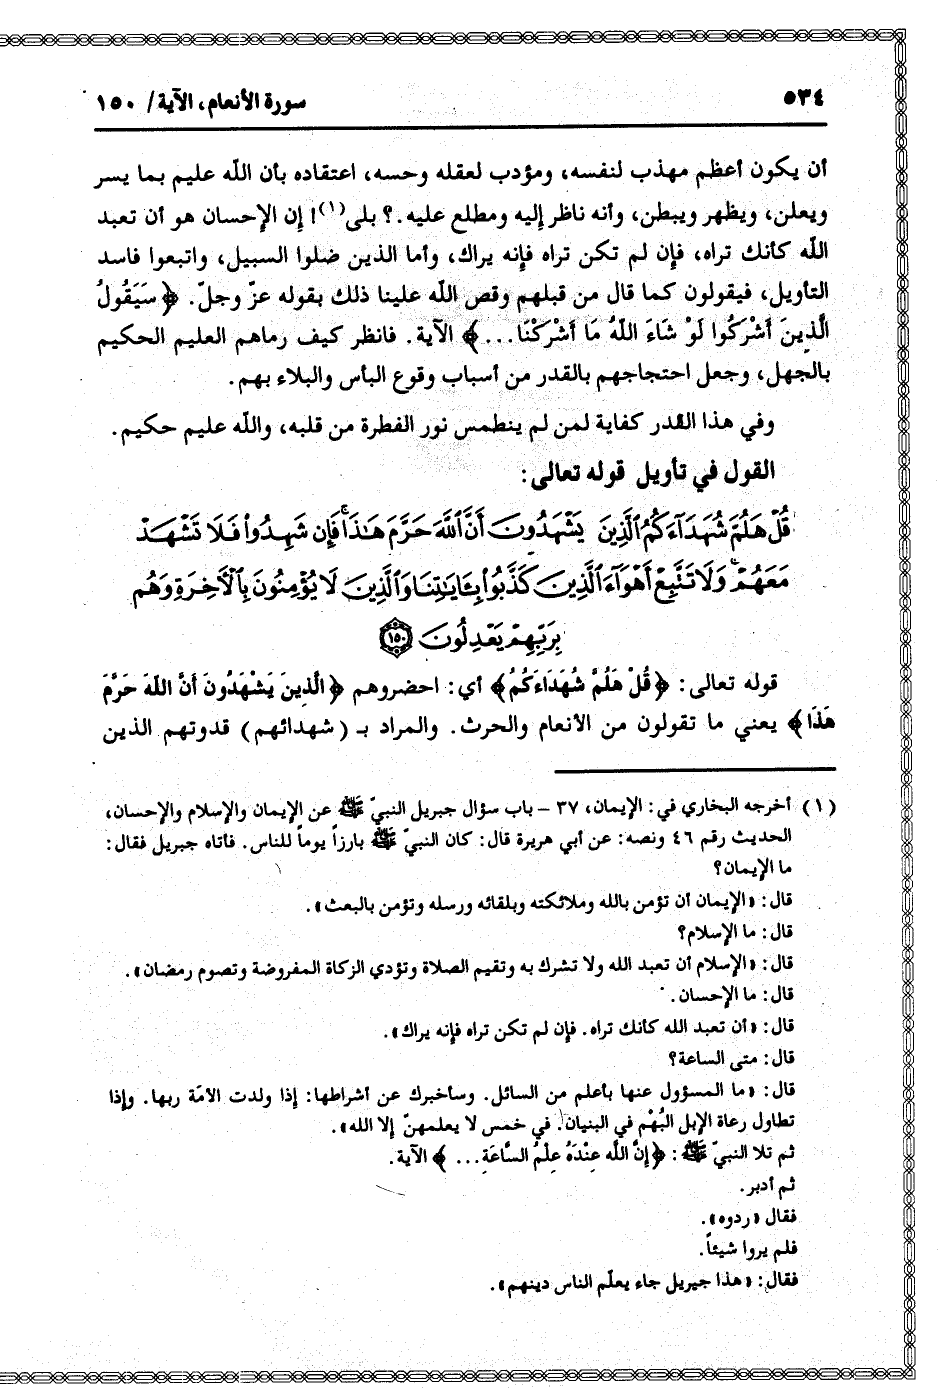 ٥٣٤
سورة الأنعام، الآية/ ١٥٠
أن يكون أعظم مهذب لنفسه، ومؤدب لعقله وحسه، اعتقاده بأن الله عليم بما يسر
ويعلن، ويظهر ويبطن، وأنه ناظر إليه ومطلع عليه.؟ بلى(١)! إن الإحسان هو أن تعبد
الله كأنك تراه، فإن لم تكن تراه فإنه يراك، وأما الذين ضلوا السبيل، واتبعوا فاسد
التأويل، فيقولون كما قال من قبلهم وقص الله علينا ذلك بقوله عزّ وجلّ. ﴿سَيَقُولُ
الَّذِينَ أَشْرَكُوا لَوْ شَاءَ اللهُ مَا أَشْرَكْنَا...﴾ الآية. فانظر كيف رماهم العليم الحكيم
بالجهل، وجعل احتجاجهم بالقدر من أسباب وقوع البأس والبلاء بهم.
وفي هذا القدر كفاية لمن لم ينطمس نور الفطرة من قلبه، والله عليم حكيم.
القول في تأويل قوله تعالى:
قُلْ هَلُمَّ شُهَدَآءَكُمُ ٱلَّذِينَ يَشْهَدُونَ أَنَّ ٱللَّهَ حَرَّمَ هَٰذَا ۖ فَإِن شَهِدُوا۟ فَلَا تَشْهَدْ
مَعَهُمْ ۚ وَلَا تَتَّبِعْ أَهْوَآءَ ٱلَّذِينَ كَذَّبُوا۟ بِـَٔايَٰتِنَا وَٱلَّذِينَ لَا يُؤْمِنُونَ بِٱلْأَخِرَةِ وَهُم
بِرَبِّهِمْ يَعْدِلُونَ ١٥٠
قوله تعالى: ﴿قُلْ هَلُمَّ شُهَدَاءَكُمُ﴾ أي: احضروهم ﴿الَّذِينَ يَشْهَدُونَ أَنَّ اللهَ حَرَّمَ
هَذَا﴾ يعني ما تقولون من الأنعام والحرث. والمراد بـ (شهدائهم) قدوتهم الذين
(١) أخرجه البخاري في: الإيمان، ٣٧ - باب سؤال جبريل النبيّ ﷺ عن الإيمان والإسلام والإحسان،
الحديث رقم ٤٦ ونصه: عن أبي هريرة قال: كان النبيّ ﷺ بارزاً يوماً للناس. فأتاه جبريل فقال:
ما الإيمان؟
قال: «الإيمان أن تؤمن بالله وملائكته وبلقائه ورسله وتؤمن بالبعث».
قال: ما الإسلام؟
قال: «الإسلام أن تعبد الله ولا تشرك به وتقيم الصلاة وتؤدي الزكاة المفروضة وتصوم رمضان».
قال: ما الإحسان.
قال: «أن تعبد الله كأنك تراه. فإن لم تكن تراه فإنه يراك».
قال: متى الساعة؟
قال: «ما المسؤول عنها بأعلم من السائل. وسأخبرك عن أشراطها: إذا ولدت الأمَة ربها. وإذا
تطاول رعاة الإبل البُهْم في البنيان. في خمس لا يعلمهنّ إلا الله».
ثم تلا النبيّ ﷺ: ﴿إنَّ اللهَ عِنْدَهُ عِلْمُ السَّاعَةِ...﴾ الآية.
ثم أدبر.
فقال «ردوه».
فلم يروا شيئاً.
فقال: «هذا جبريل جاء يعلّم الناس دينهم».